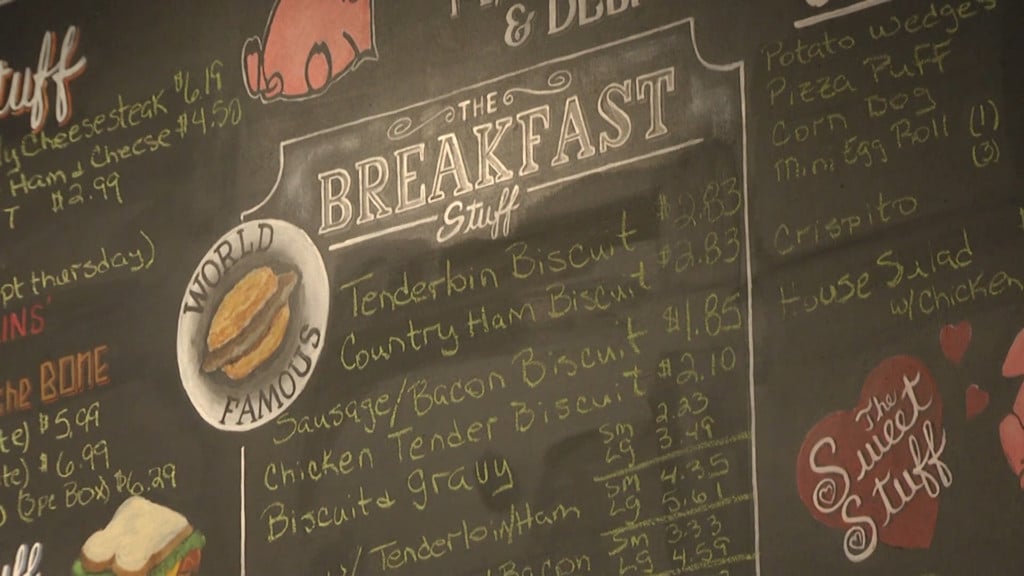 tuff
ly Cheesesteak $6.19
Ham & Cheese $4.50
T $2.99
pt thursday)
INS'
the BONE
te) $5.99
te) $6.99
(3pc Box) $6.29
& DELI
THE
BREAKFAST
Stuff
WORLD
FAMOUS
Tenderloin Biscuit $2.83
Country Ham Biscuit $2.83
Sausage/Bacon Biscuit $1.85
Chicken Tender Biscuit $2.10
Biscuit & gravy Sm 2.23
Lg 3.49
w/ Tenderloin/Ham Sm 4.35
Lg 5.61
Bacon Sm 3.33
Lg 4.59
Potato Wedges
Pizza Puff
Corn Dog
Mini Egg Roll (1)
(3)
Crispito
House Salad
w/Chicken
The
Sweet
Stuff